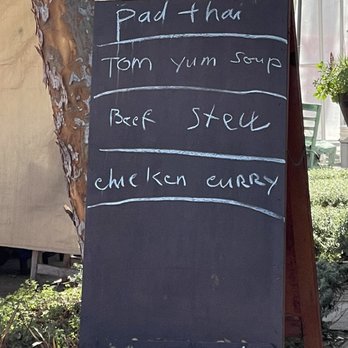 pad thai
Tom yum soup
Beef stew
chicken curry